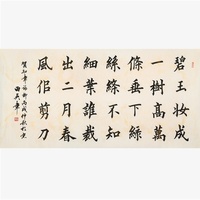 碧玉妝成
一樹高萬
條垂下綠
絲絛不知
細葉誰裁
出二月春
風佀剪刀
賀知章詠柳丙戌仲秋於京
田英章書